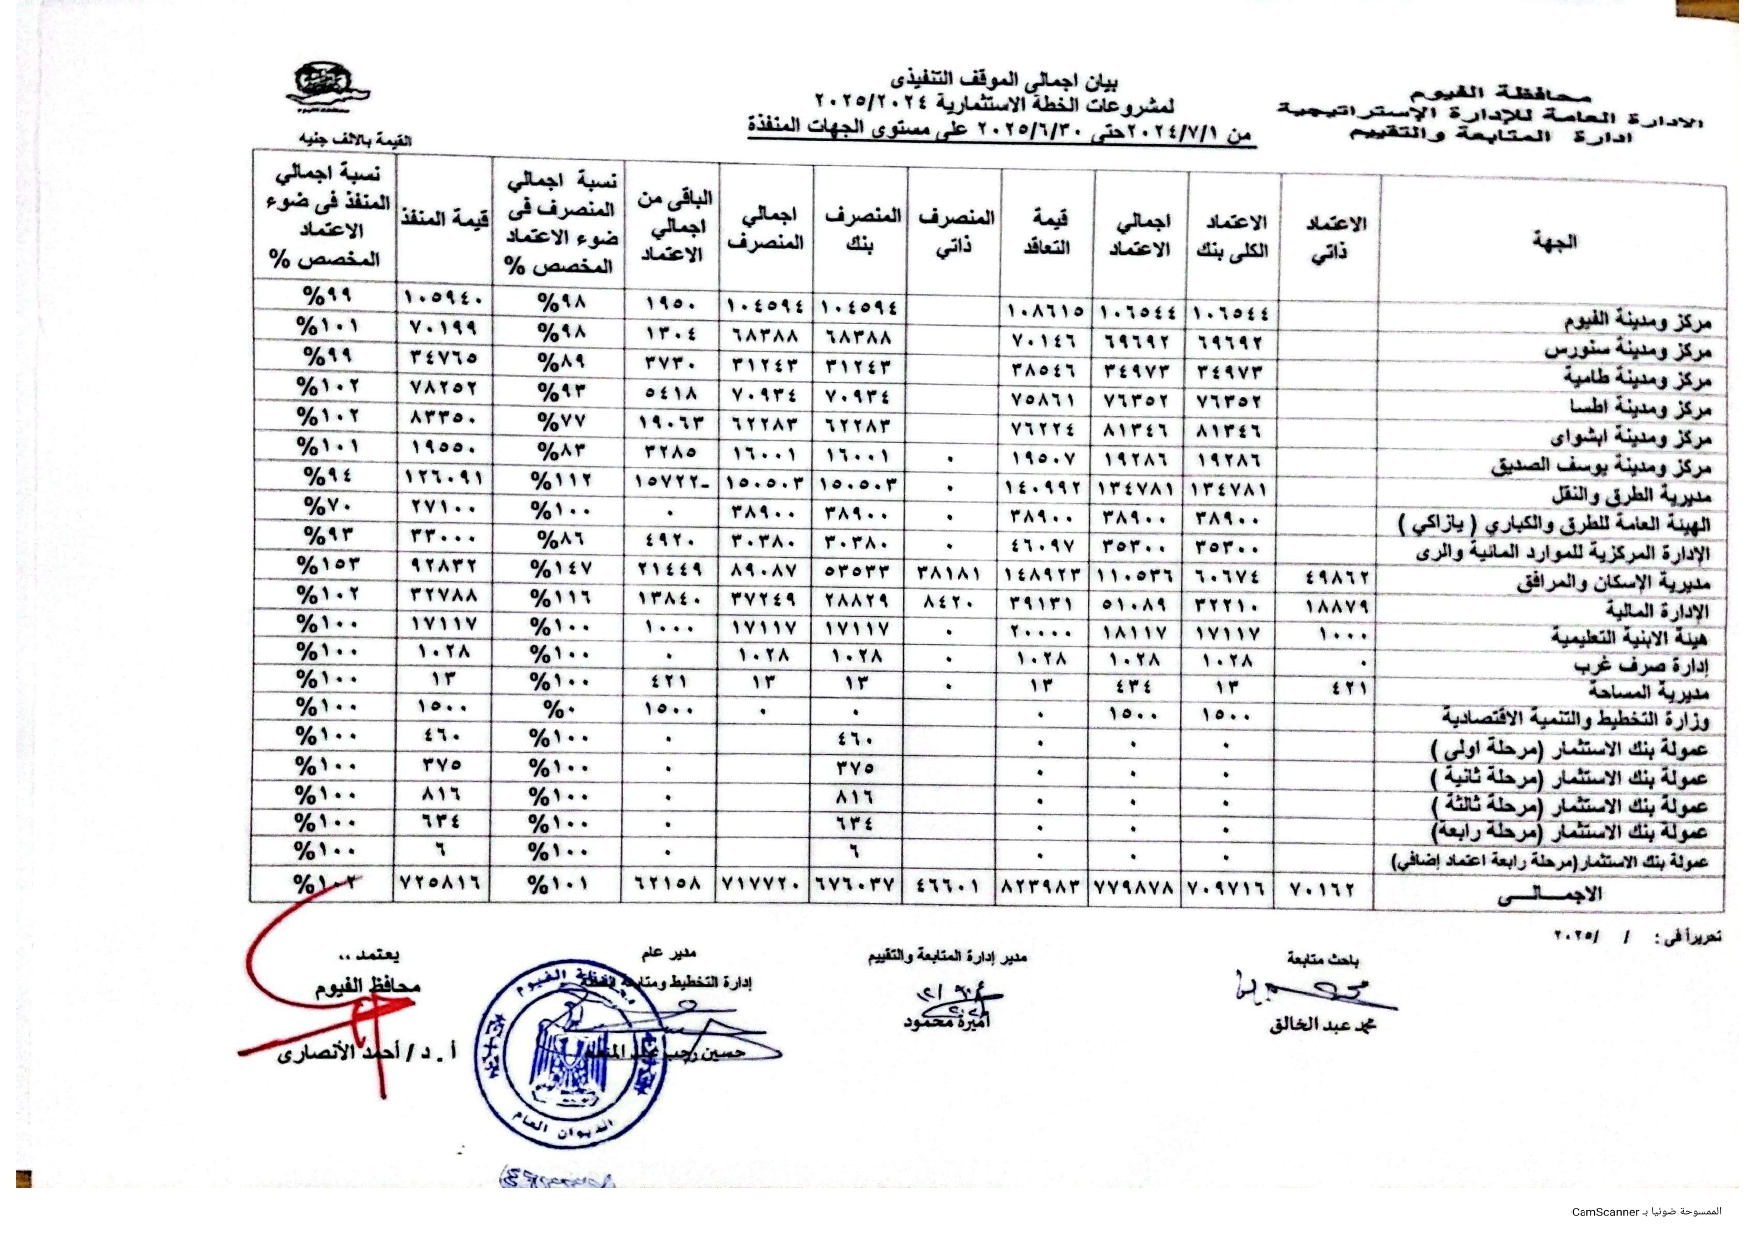 محافظة الفيوم
الادارة العامة للإدارة الإستراتيجية
ادارة المتابعة والتقييم
بيان اجمالى الموقف التنفيذى
لمشروعات الخطة الاستثمارية ٢٠٢٥/٢٠٢٤
من ٢٠٢٤/٧/١حتى ٢٠٢٥/٦/٣٠ على مستوى الجهات المنفذة
القيمة بالالف جنيه
الجهة | الاعتماد ذاتي | الاعتماد الكلى بنك | اجمالى الاعتماد | قيمة التعاقد | المنصرف ذاتي | المنصرف بنك | اجمالي المنصرف | الباقى من اجمالي الاعتماد | نسبة اجمالي المنصرف فى ضوء الاعتماد المخصص % | قيمة المنفذ | نسبة اجمالي المنفذ فى ضوء الاعتماد المخصص %
مركز ومدينة الفيوم ١٠٦٥٤٤ ١٠٦٥٤٤ ١٠٨٦١٥ ١٠٤٥٩٤ ١٠٤٥٩٤ ١٩٥٠ %٩٨ ١٠٥٩٤٠ %٩٩
مركز ومدينة سنورس ٦٩٦٩٢ ٦٩٦٩٢ ٧٠١٤٦ ٦٨٣٨٨ ٦٨٣٨٨ ١٣٠٤ %٩٨ ٧٠١٩٩ %١٠١
مركز ومدينة طامية ٣٤٩٧٣ ٣٤٩٧٣ ٣٨٥٤٦ ٣١٢٤٣ ٣١٢٤٣ ٣٧٣٠ %٨٩ ٣٤٧٦٥ %٩٩
مركز ومدينة اطسا ٧٦٣٥٢ ٧٦٣٥٢ ٧٥٨٦١ ٧٠٩٣٤ ٧٠٩٣٤ ٥٤١٨ %٩٣ ٧٨٢٥٢ %١٠٢
مركز ومدينة ابشواى ٨١٣٤٦ ٨١٣٤٦ ٧٦٢٢٤ ٦٢٢٨٣ ٦٢٢٨٣ ١٩٠٦٣ %٧٧ ٨٣٣٥٠ %١٠٢
مركز ومدينة يوسف الصديق ١٩٢٨٦ ١٩٢٨٦ ١٩٥٠٧ ٠ ١٦٠٠١ ١٦٠٠١ ٣٢٨٥ %٨٣ ١٩٥٥٠ %١٠١
مديرية الطرق والنقل ١٣٤٧٨١ ١٣٤٧٨١ ١٤٠٩٩٢ ٠ ١٥٠٥٠٣ ١٥٠٥٠٣ ١٥٧٢٢- %١١٢ ١٢٦٠٩١ %٩٤
الهيئة العامة للطرق والكباري ( يازاكي ) ٣٨٩٠٠ ٣٨٩٠٠ ٣٨٩٠٠ ٠ ٣٨٩٠٠ ٣٨٩٠٠ ٠ %١٠٠ ٢٧١٠٠ %٧٠
الإدارة المركزية للموارد المائية والرى ٣٥٣٠٠ ٣٥٣٠٠ ٤٦٠٩٧ ٠ ٣٠٣٨٠ ٣٠٣٨٠ ٤٩٢٠ %٨٦ ٣٣٠٠٠ %٩٣
مديرية الإسكان والمرافق ٤٩٨٦٢ ٦٠٦٧٤ ١١٠٥٣٦ ١٤٨٩٢٣ ٣٨١٨١ ٥٣٥٣٣ ٨٩٠٨٧ ٢١٤٤٩ %١٤٧ ٩٢٨٣٢ %١٥٣
الإدارة المالية ١٨٨٧٩ ٣٢٢١٠ ٥١٠٨٩ ٣٩١٣١ ٨٤٢٠ ٢٨٨٢٩ ٣٧٢٤٩ ١٣٨٤٠ %١١٦ ٣٢٧٨٨ %١٠٢
هيئة الابنية التعليمية ١٠٠٠ ١٧١١٧ ١٨١١٧ ٢٠٠٠٠ ٠ ١٧١١٧ ١٧١١٧ ١٠٠٠ %١٠٠ ١٧١١٧ %١٠٠
إدارة صرف غرب ٠ ١٠٢٨ ١٠٢٨ ١٠٢٨ ٠ ١٠٢٨ ١٠٢٨ ٠ %١٠٠ ١٠٢٨ %١٠٠
مديرية المساحة ٤٢١ ١٣ ٤٣٤ ١٣ ٠ ١٣ ١٣ ٤٢١ %١٠٠ ١٣ %١٠٠
وزارة التخطيط والتنمية الاقتصادية ١٥٠٠ ١٥٠٠ ٠ ٠ ٠ ١٥٠٠ %٠ ١٥٠٠ %١٠٠
عمولة بنك الاستثمار (مرحلة اولى ) ٠ ٠ ٠ ٤٦٠ ٠ %١٠٠ ٤٦٠ %١٠٠
عمولة بنك الاستثمار (مرحلة ثانية ) ٠ ٠ ٠ ٣٧٥ ٠ %١٠٠ ٣٧٥ %١٠٠
عمولة بنك الاستثمار (مرحلة ثالثة ) ٠ ٠ ٠ ٨١٦ ٠ %١٠٠ ٨١٦ %١٠٠
عمولة بنك الاستثمار (مرحلة رابعة) ٠ ٠ ٠ ٦٣٤ ٠ %١٠٠ ٦٣٤ %١٠٠
عمولة بنك الاستثمار(مرحلة رابعة اعتماد إضافي) ٠ ٠ ٠ ٦ ٠ %١٠٠ ٦ %١٠٠
الاجمــالــى ٧٠١٦٢ ٧٠٩٧١٦ ٧٧٩٨٧٨ ٨٢٣٩٨٣ ٤٦٦٠١ ٦٧٦٠٣٧ ٧١٧٧٢٠ ٦٢١٥٨ %١٠١ ٧٢٥٨١٦ %١٠٢
تحريراً فى : / /٢٠٢٥
باحث متابعة
محمد عبد الخالق
مدير إدارة المتابعة والتقييم
أميرة محمود
مدير عام
إدارة التخطيط ومتابعة الخطة
حسين رجب عبد المنعم
يعتمد ..
محافظ الفيوم
أ . د / أحمد الأنصارى
محافظة الفيوم
الديوان العام
الممسوحة ضوئيا بـ CamScanner